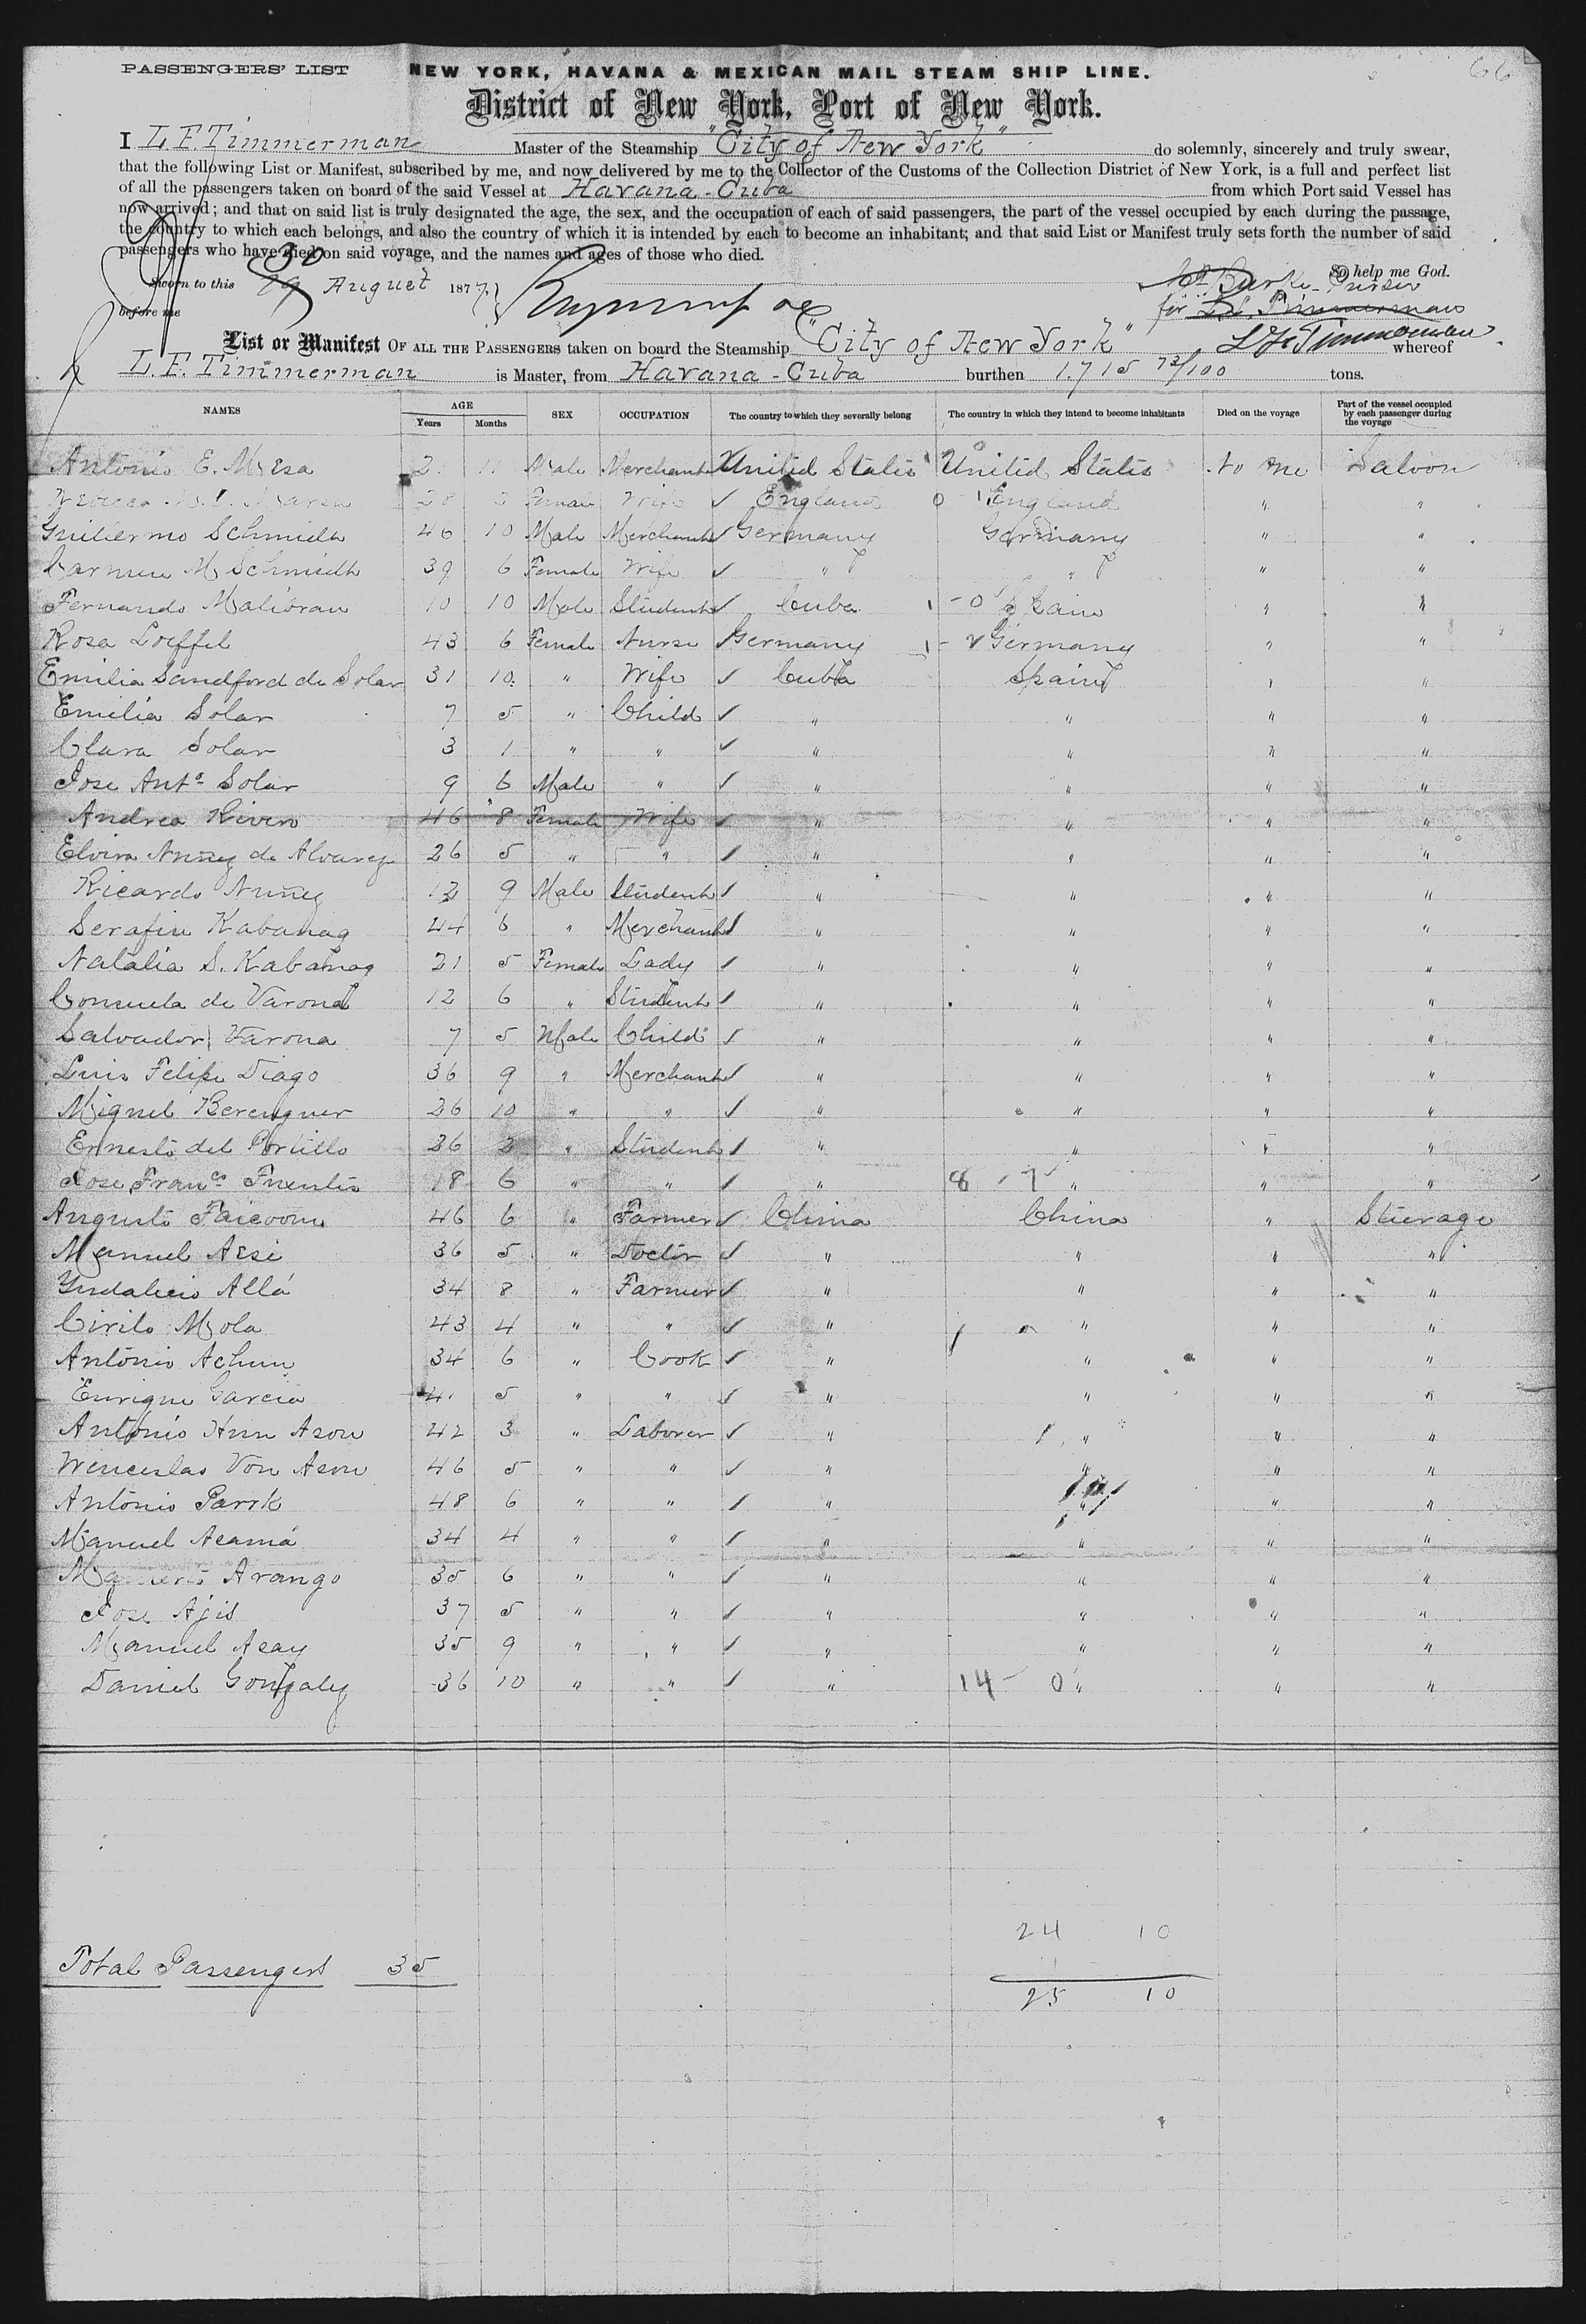 PASSENGERS' LIST NEW YORK, HAVANA & MEXICAN MAIL STEAM SHIP LINE. 66
District of New York, Port of New York.
I L. F. Timmerman Master of the Steamship "City of New York" do solemnly, sincerely and truly swear,
that the following List or Manifest, subscribed by me, and now delivered by me to the Collector of the Customs of the Collection District of New York, is a full and perfect list
of all the passengers taken on board of the said Vessel at Havana - Cuba from which Port said Vessel has
now arrived; and that on said list is truly designated the age, the sex, and the occupation of each of said passengers, the part of the vessel occupied by each during the passage,
the country to which each belongs, and also the country of which it is intended by each to become an inhabitant; and that said List or Manifest truly sets forth the number of said
passengers who have died on said voyage, and the names and ages of those who died.
So help me God.
Sworn to this 30 August 1877
before me
Burke - Purser
for L. F. Timmerman
L F Timmerman
List or Manifest OF ALL THE PASSENGERS taken on board the Steamship "City of New York" whereof
L. F. Timmerman is Master, from Havana - Cuba burthen 1.715 73/100 tons.
NAMES AGE Years Months SEX OCCUPATION The country to which they severally belong The country in which they intend to become inhabitants Died on the voyage Part of the vessel occupied by each passenger during the voyage
Antonio E. Mesa 2 11 Male Merchant United States United States No one Saloon
28 Female Wife England England " "
Guillermo Schmidt 46 10 Male Merchant Germany Germany " "
Carmen M Schmidt 39 6 Female Wife " " " "
Fernando Malibran 10 10 Male Student Cuba Spain " "
Rosa Loeffel 43 6 Female Nurse Germany Germany " "
Emilia Sandford de Solar 31 10 " Wife Cuba Spain " "
Emilia Solar 7 5 " Child " " " "
Clara Solar 3 1 " " " " " "
Jose Anto Solar 9 6 Male " " " " "
Andrea Rivero 46 8 Female Wife " " " "
Elvira Nuñez de Alvarez 26 5 " " " " " "
Ricardo Nuñez 12 9 Male Student " " " "
Serafin Kabanag 44 6 " Merchant " " " "
Natalia S. Kabanag 21 5 Female Lady " " " "
Consuela de Varona 12 6 " Student " " " "
Salvador Varona 7 5 Male Child " " " "
Luis Felipe Diago 36 9 " Merchant " " " "
Miguel Berenguer 26 10 " " " " " "
Ernesto del Portillo 26 " Student " " " "
Jose Franco Fuentes 18 6 " " " 8 - 7 " " "
Augusto 46 6 " Farmer China China " Steerage
Manuel Assi 36 5 " Doctor " " " "
Yndalecio Allá 34 8 " Farmer " " " "
Cirilo Mola 43 4 " " " " " "
Antonio Achun 34 6 " Cook " " " "
Enrique Garcia 41 5 " " " " " "
Antonio Hun Ason 42 3 " Laborer " " " "
Wenceslao Von Ason 46 5 " " " " " "
Antonio Parsk 48 6 " " " " " "
Manuel Acamá 34 4 " " " " " "
Arango 35 6 " " " " " "
Jose Ajis 37 5 " " " " " "
Manuel Acay 35 9 " " " " " "
Daniel Gonzalez 36 10 " " " 14 - 0 " " "
24 10
1
Total Passengers 35
25 10